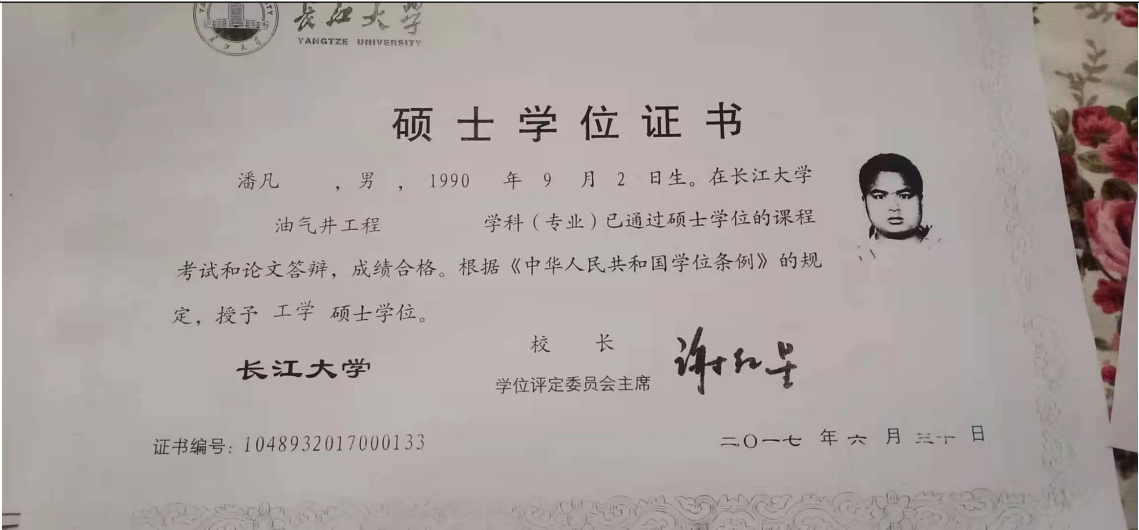 长江大学
YANGTZE UNIVERSITY
硕士学位证书
潘凡 ,男,1990 年 9 月 2 日生。在长江大学
油气井工程 学科(专业)已通过硕士学位的课程
考试和论文答辩,成绩合格。根据《中华人民共和国学位条例》的规
定,授予 工学 硕士学位。
校 长
长江大学
学位评定委员会主席
谢红星
证书编号:1048932017000133
二〇一七 年 六 月 三十 日